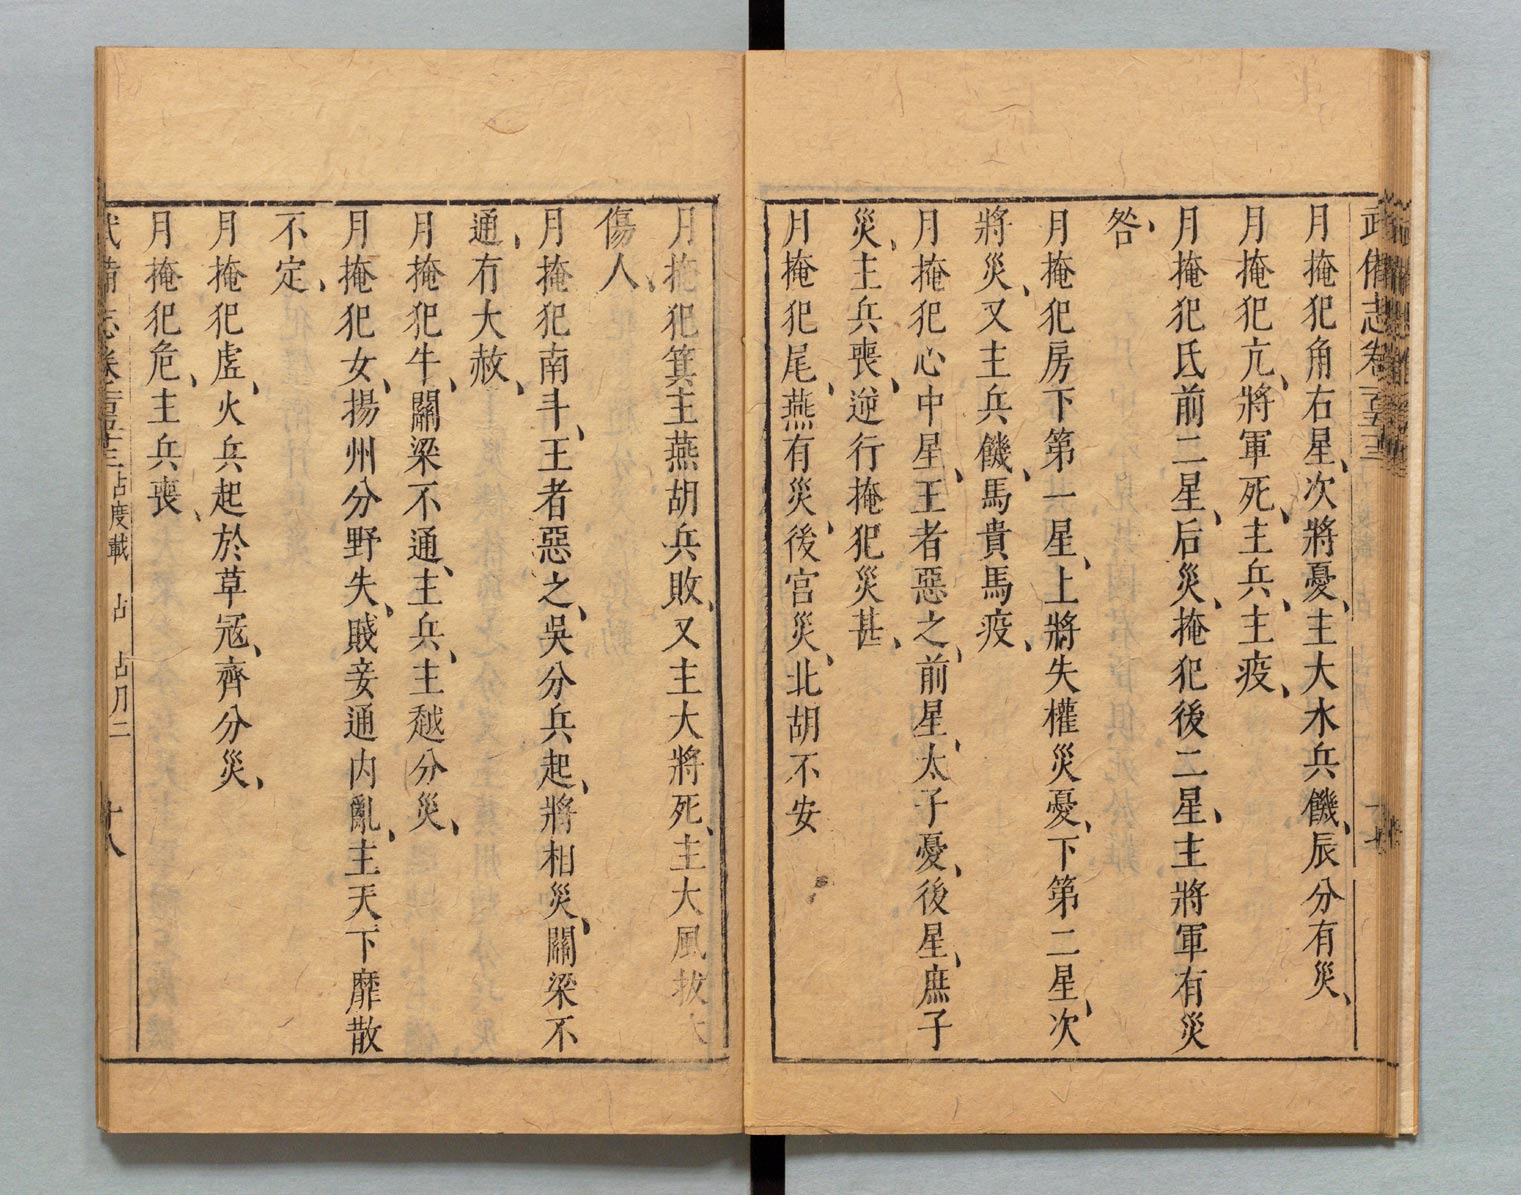 武備志卷一百五十三
月掩犯角右星、次將憂、主大水兵饑、辰分有災、
月掩犯亢、將軍死、主兵、主疫、
月掩犯氐前二星、后災、掩犯後二星、主將軍有災
咎、
月掩犯房下第一星、上將失權災憂、下第二星、次
將災、又主兵饑、馬貴馬疫、
月掩犯心中星、王者惡之、前星、太子憂、後星、庶子
災、主兵喪、逆行掩犯災甚、
月掩犯尾、燕有災、後宮災、北胡不安
月掩犯箕主燕胡兵敗、又主大將死、主大風拔木
傷人、
月掩犯南斗、王者惡之、吳分兵起、將相災、關梁不
通、有大赦、
月掩犯牛、關梁不通、主兵、主越分災、
月掩犯女、揚州分野失、賊妾通內亂、主天下靡散
不定、
月掩犯虛、火兵起於草冦、齊分災、
月掩犯危、主兵喪、
武備志卷一百五十三 占度載 占 占月二 十八